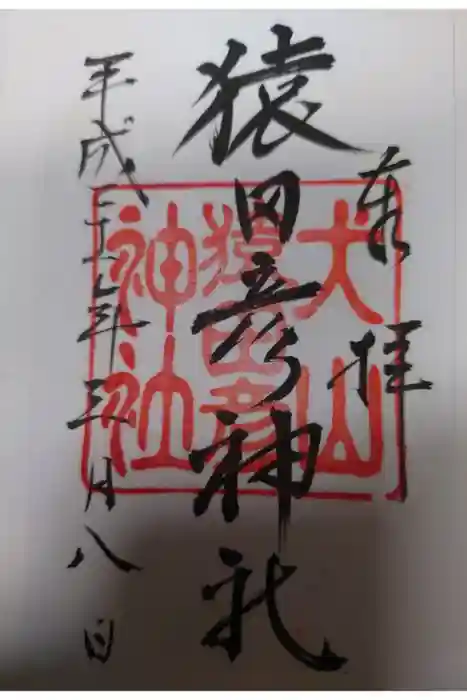 奉拝
猿田彦神社
平成二十七年三月八日
犬山
猿田彦
神社